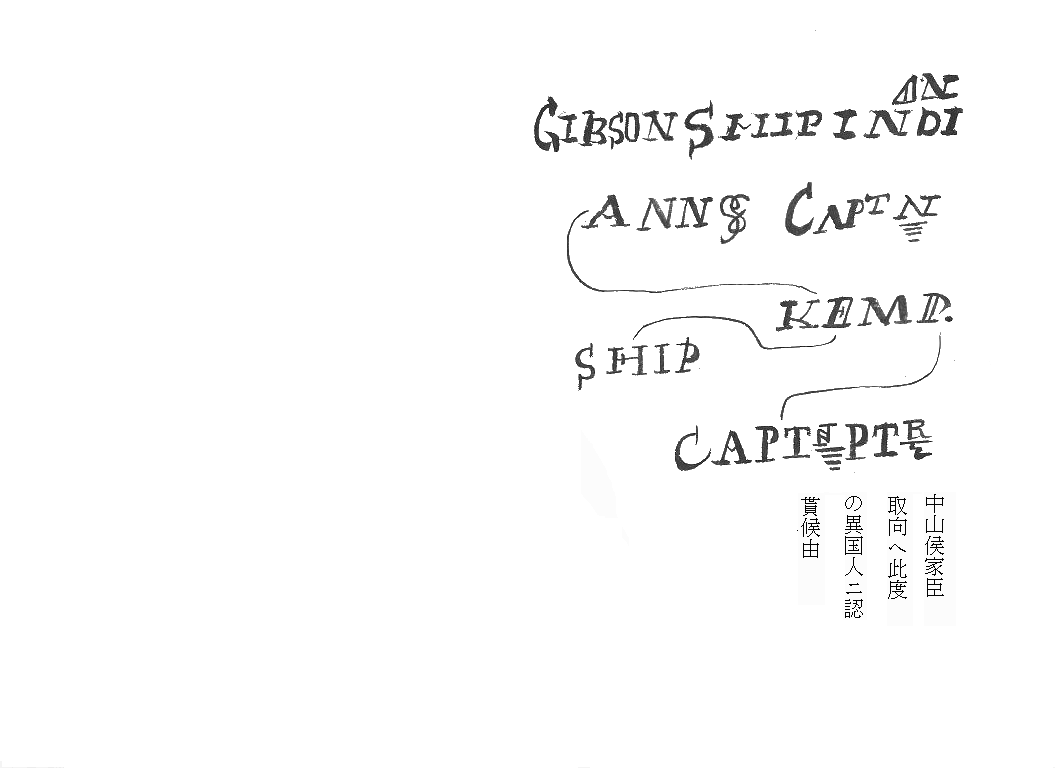 GIBSON SHIP INDIAN
ANNS CAPTN
KEMP.
SHIP
CAPTN PTR
中山侯家臣
取向へ此度
の異国人ニ認
貰候由